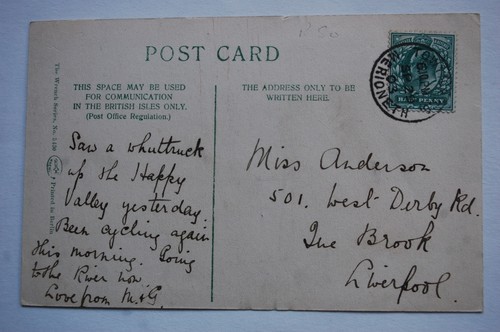 POST CARD
THIS SPACE MAY BE USED
FOR COMMUNICATION
IN THE BRITISH ISLES ONLY.
(Post Office Regulation.)
THE ADDRESS ONLY TO BE
WRITTEN HERE.
The Wrench Series, No.
Printed in Berlin
HALFPENNY
MERIONETH
Saw a
up the Happy
Valley yesterday.
Been cycling again
this morning. Going
to the River now
Love from M.&G.
Miss Anderson
501. West Derby Rd.
The Brook
Liverpool.